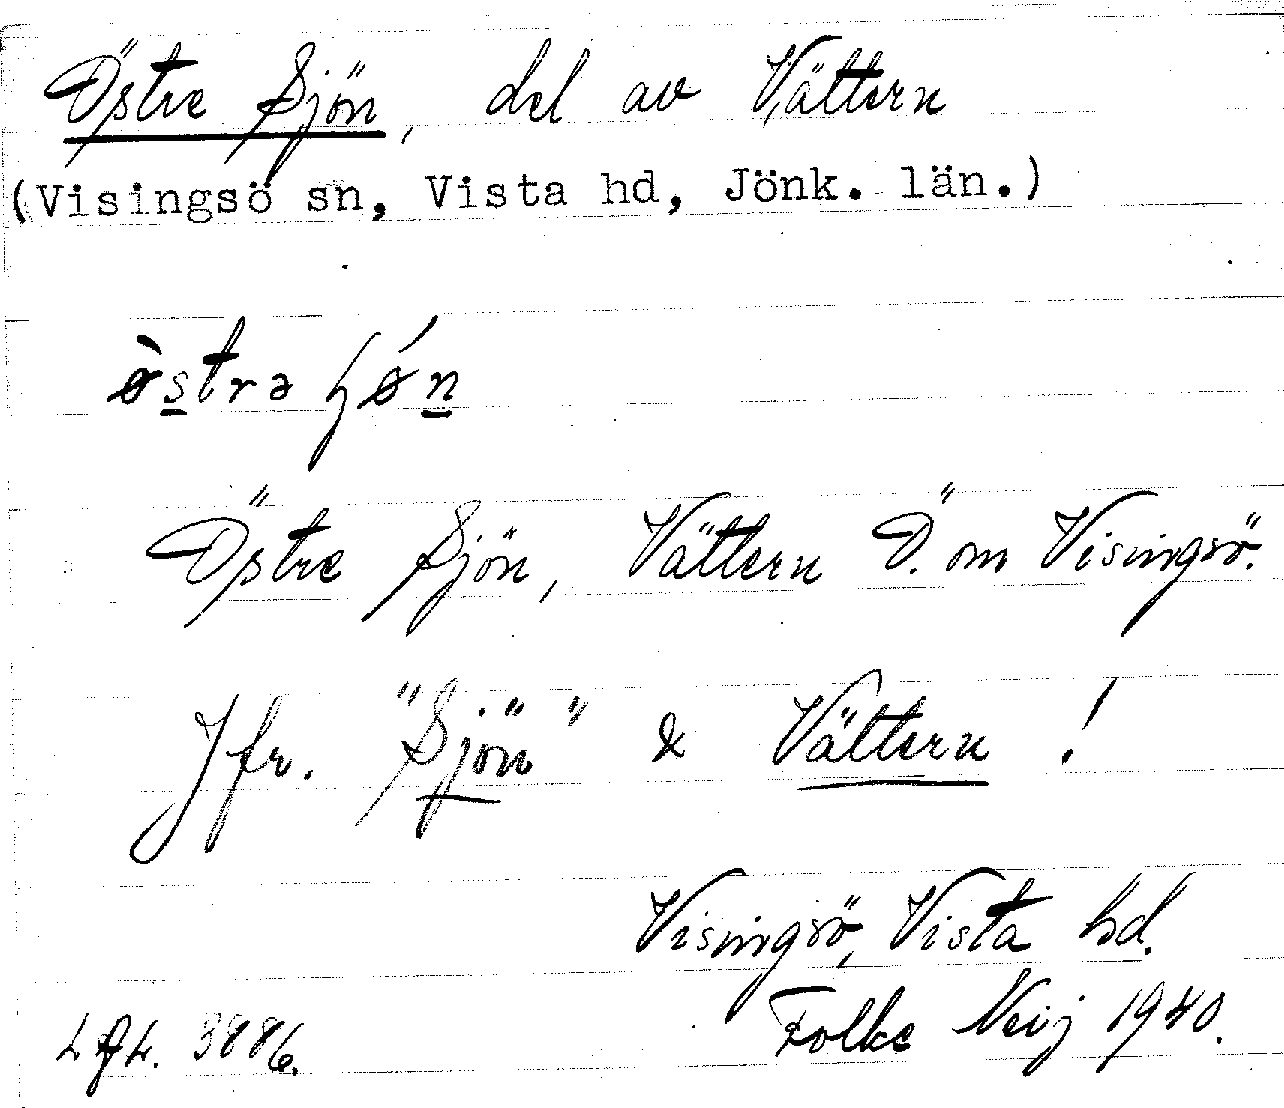 Östre Sjön, del av Vättern
(Visingsö sn, Vista hd, Jönk. län.)
Östre Sjön, Vättern Ö. om Visingsö.
Jfr. "Sjön" & Vättern!
Visingsö, Vista hd.
3886. Folke Neij 1940.